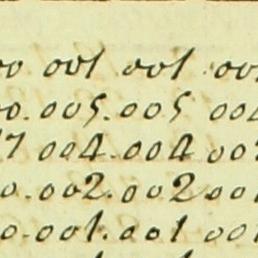 00 001 001 00
0.005.005 004
7 004.004 00
0.002.002 00
0.001.001 00